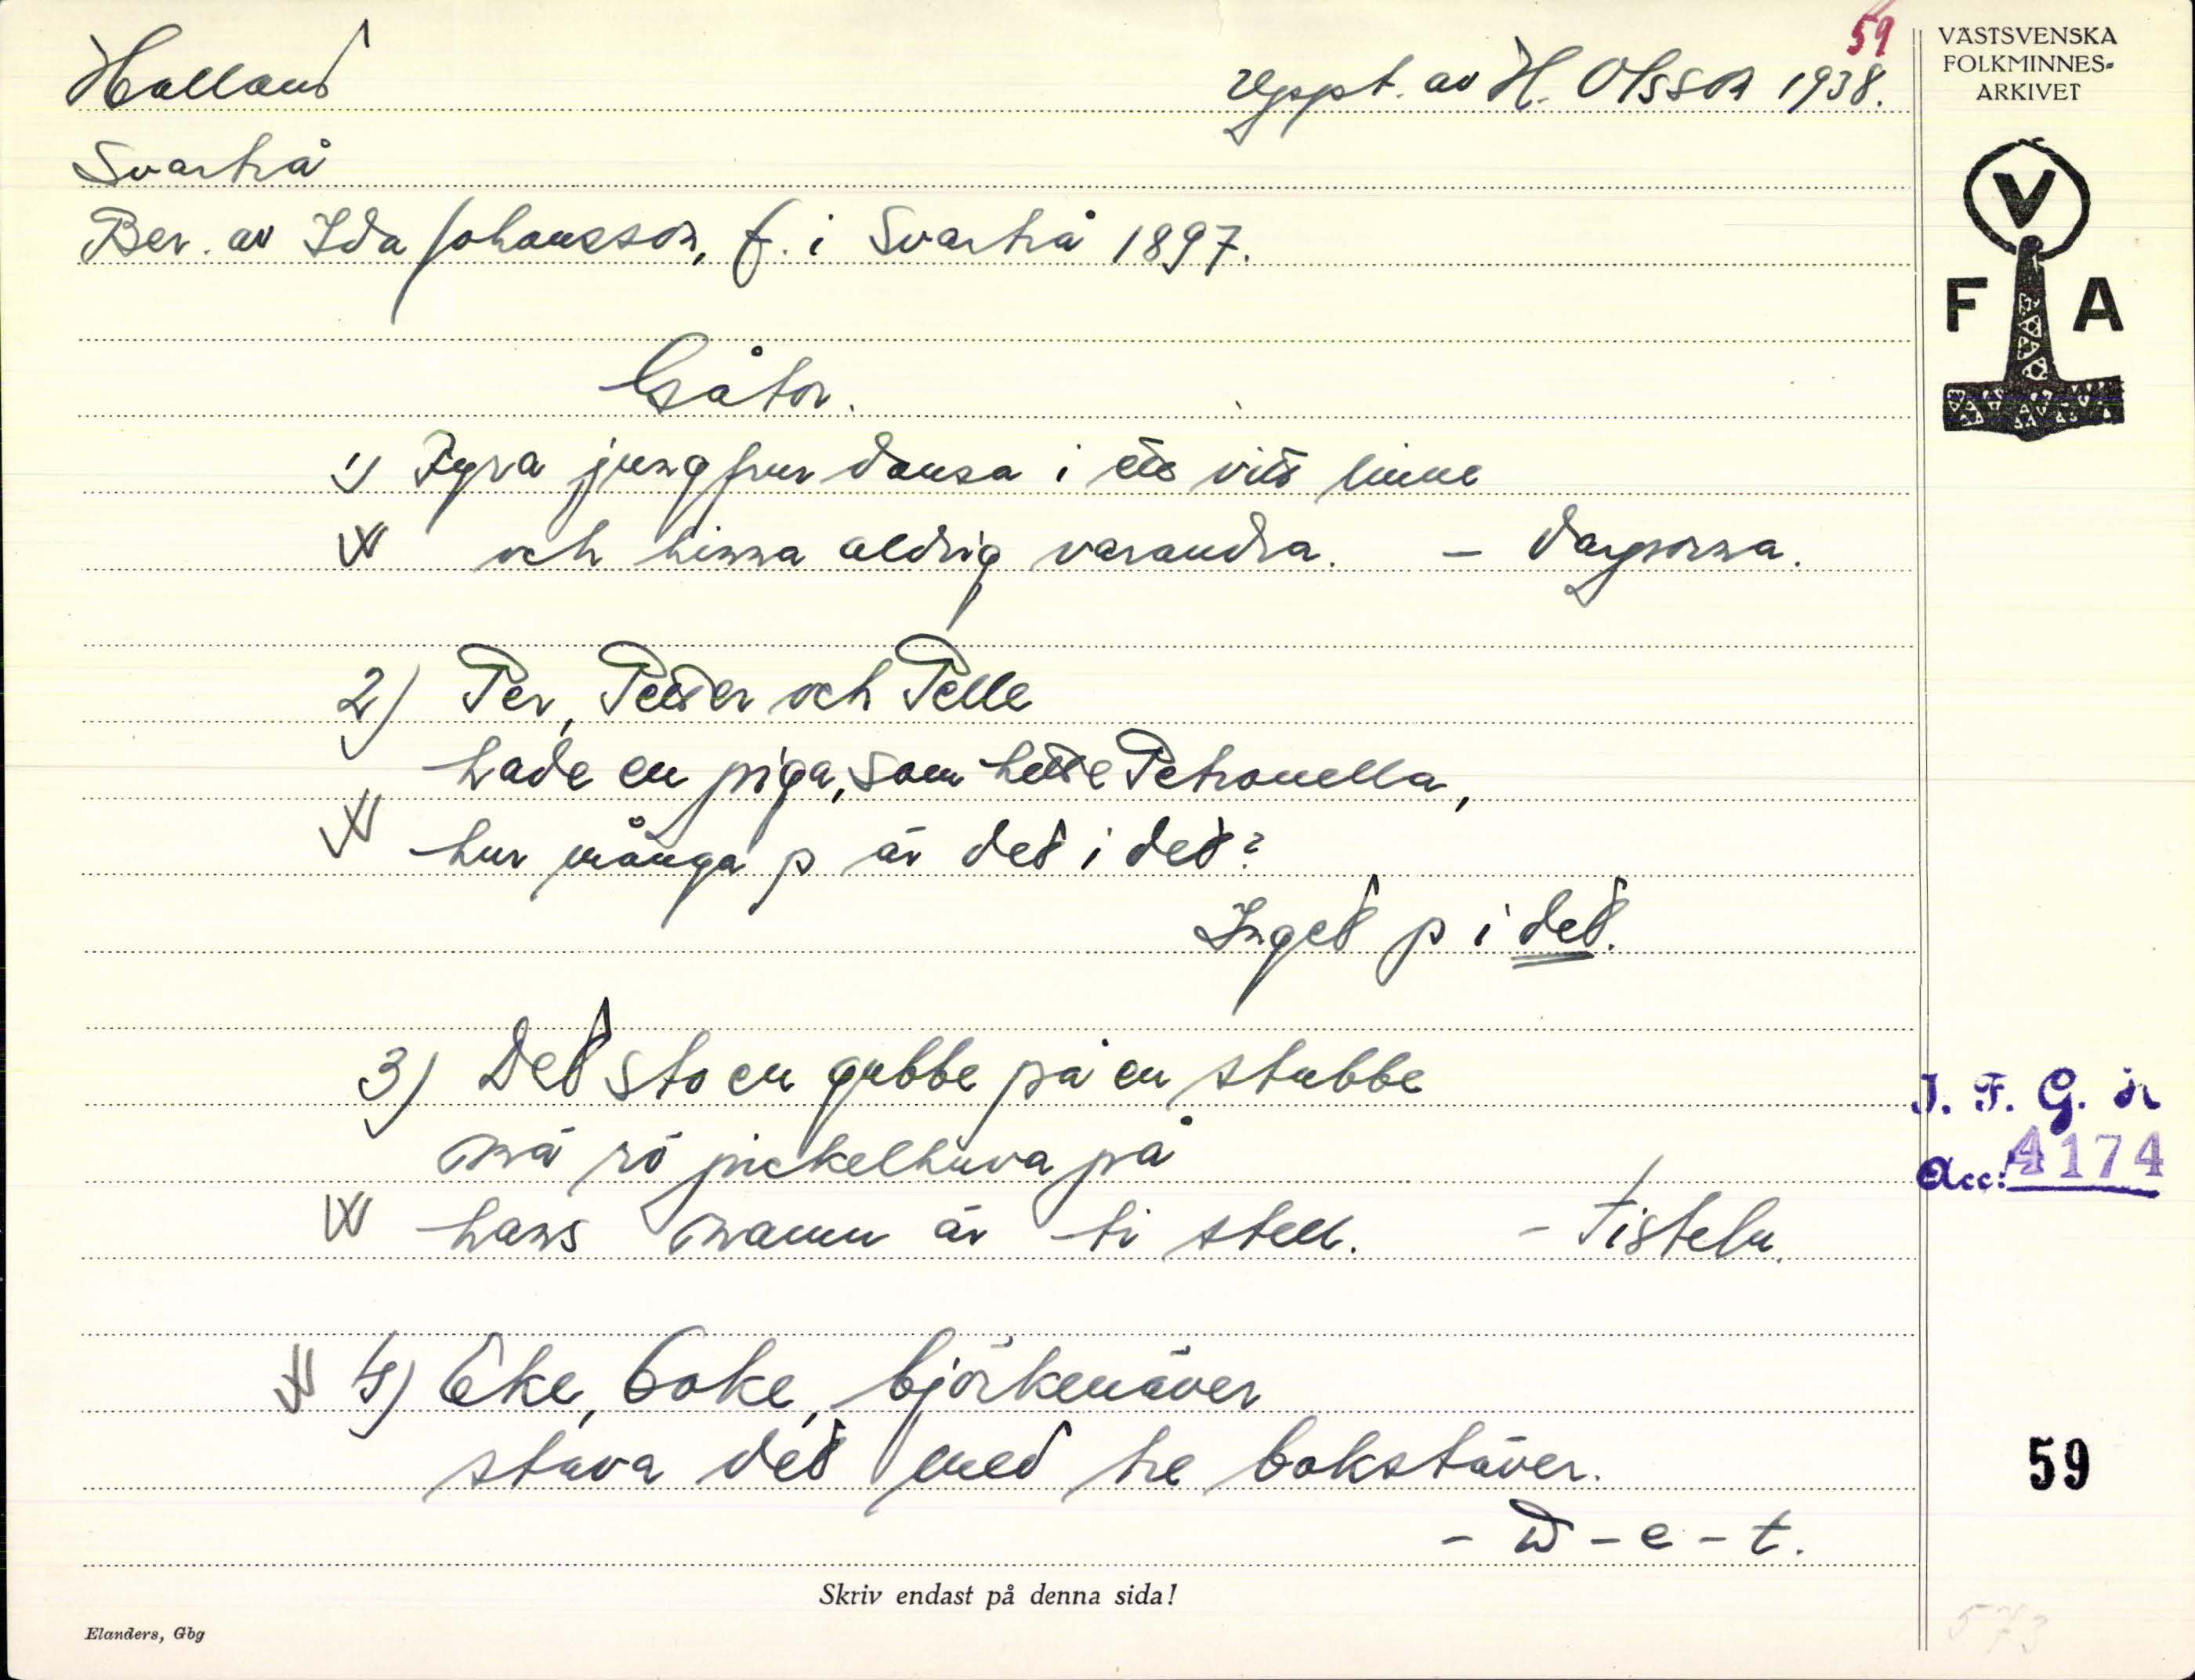 59
Halland Uppt. av H. Olsson 1938.
VÄSTSVENSKA
FOLKMINNES-
ARKIVET
Svartrå
Ber. av Ida Johansson, f. i Svartrå 1897.
V
F A
Gåtor.
1) Fyra jungfrur dansa i ett vitt linne
och hinna aldrig varandra. –
2) Per, Petter och Pelle
hade en piga, som hette Petronella,
hur många p är det i det?
Inget p i det.
3) Det sto en gubbe på en stubbe
mä rö pickelhuva på
hans namn är ti stell. – Tisteln.
4) Eke, boke, björkenäver
stava det med tre bokstäver.
– D – e – t.
I. F. G. ır
Acc: 4174
59
Skriv endast på denna sida!
Elanders, Gbg
573